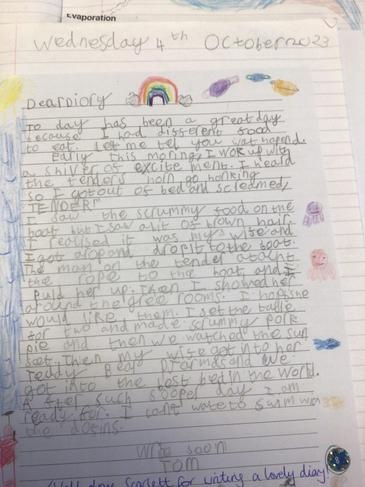 Evaporation
Wednesday 4th October 2023
Dear Diory
To day has been a great day
because I had different food
to eat. Let me tell you wat hapend.
Early this moring, I wok up with
a shiver of excite ment. I heard
the tenders horn go honking
so I got out of bed and screamed
TENDER!
I saw the scrummy food on the
boat but I saw a bit of brown hair.
I realised it was my wife and
I got a rop and drop it to the boat.
The man on the tender
the rope to the boat, and I
puld her up. Then I showed her
around the rooms. I hop she
would like them. I set the
for two and made scrummy pork
pie and then we watched the sun
set. Then my wife got into her
teddy bear and we
got into the best bed in the world.
After such day I am
ready for. I cant wate to swim
the
Write soon
TOM
Well done Scarlett for writing a lovely diary!